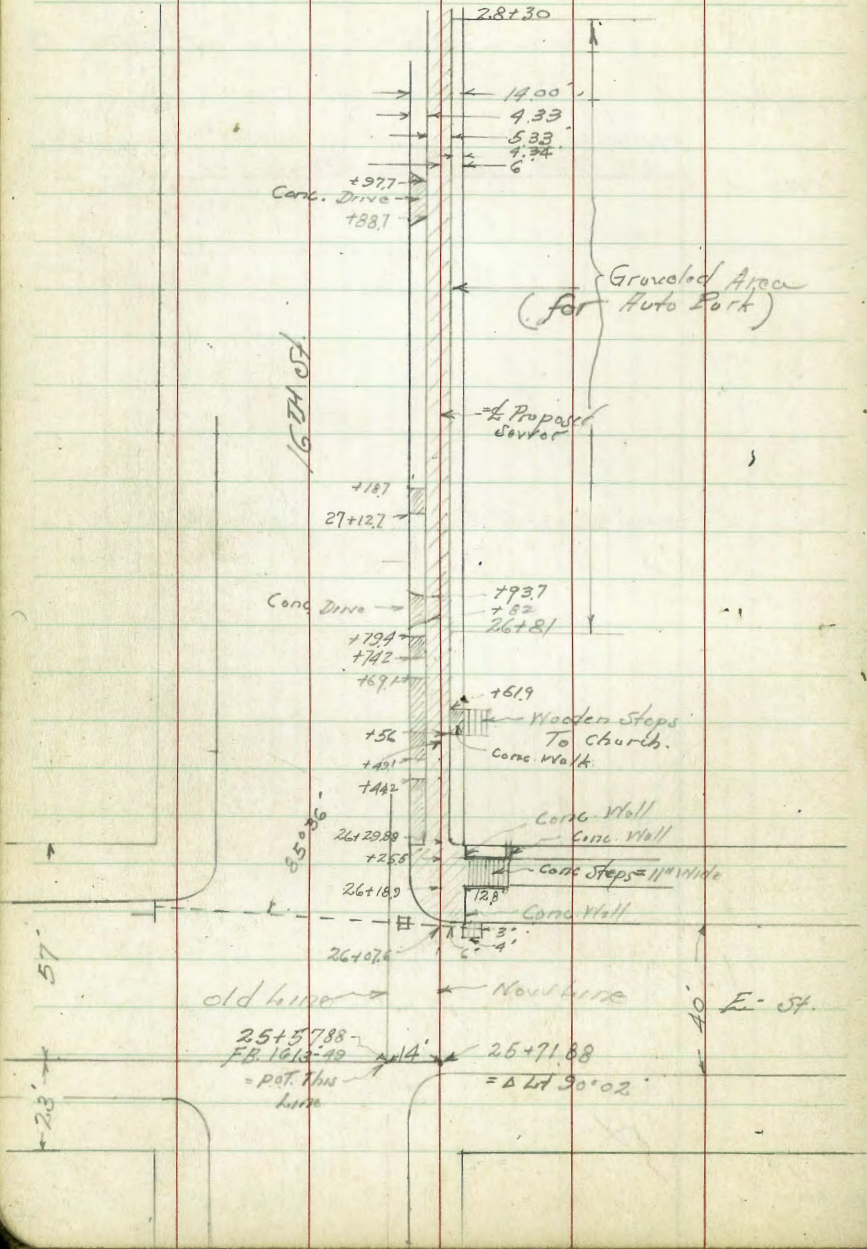 28+30
14.00'
4.33
5.33
4.34
6'
+97.7
Conc. Drive
+88.7
Graveled Area
(for Auto Park)
16TH St.
℄ Proposed
Sewer
+18.7
27+12.7
+93.7
Conc Drive
+82
26+81
+79.4
+74.2
+69.1
+61.9
Wooden Steps
To Church.
+56
Conc. Walk
+49.1
+44.2
85°36'
Conc. Wall
26+29.88
Conc. Wall
+25.5
Conc Steps = 11" Wide
26+18.9
12.8'
Conc Wall
3'
26+07.6
6' 4'
57'
Old Line
New Line
40'
E - St.
25+57.88
F.B. 1613-49
14'
25+71.88
= P.O.T. This
Line
= Δ Lt 90°02'
23'